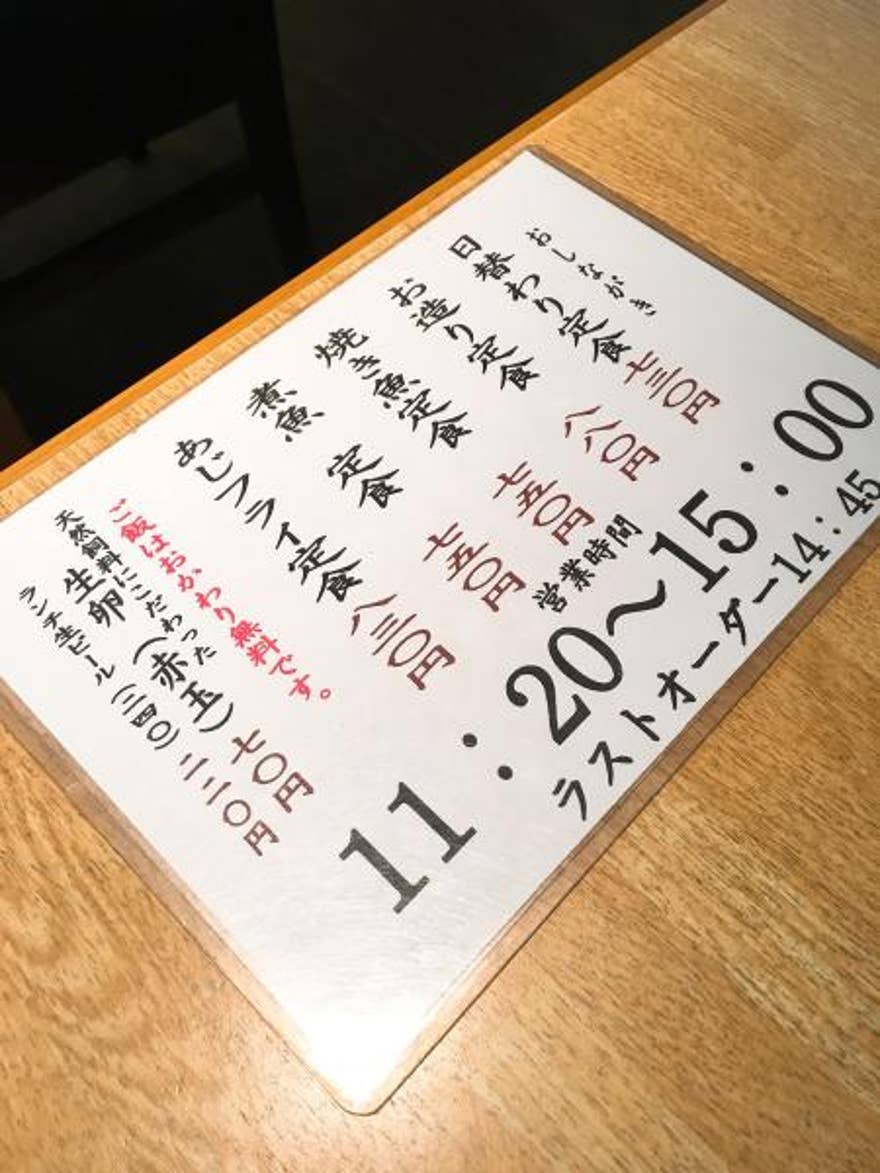 おしながき
日替わり定食 七三〇円
お造り定食 八八〇円
焼き魚定食 七五〇円
煮魚 定食 七五〇円
あじフライ定食 八三〇円
ご飯はおかわり無料です。
天然飼料にこだわった
生卵(赤玉) 七〇円
ランチ生ビール(三四〇) 二二〇円
営業時間
11:20〜15:00
ラストオーダー14:45